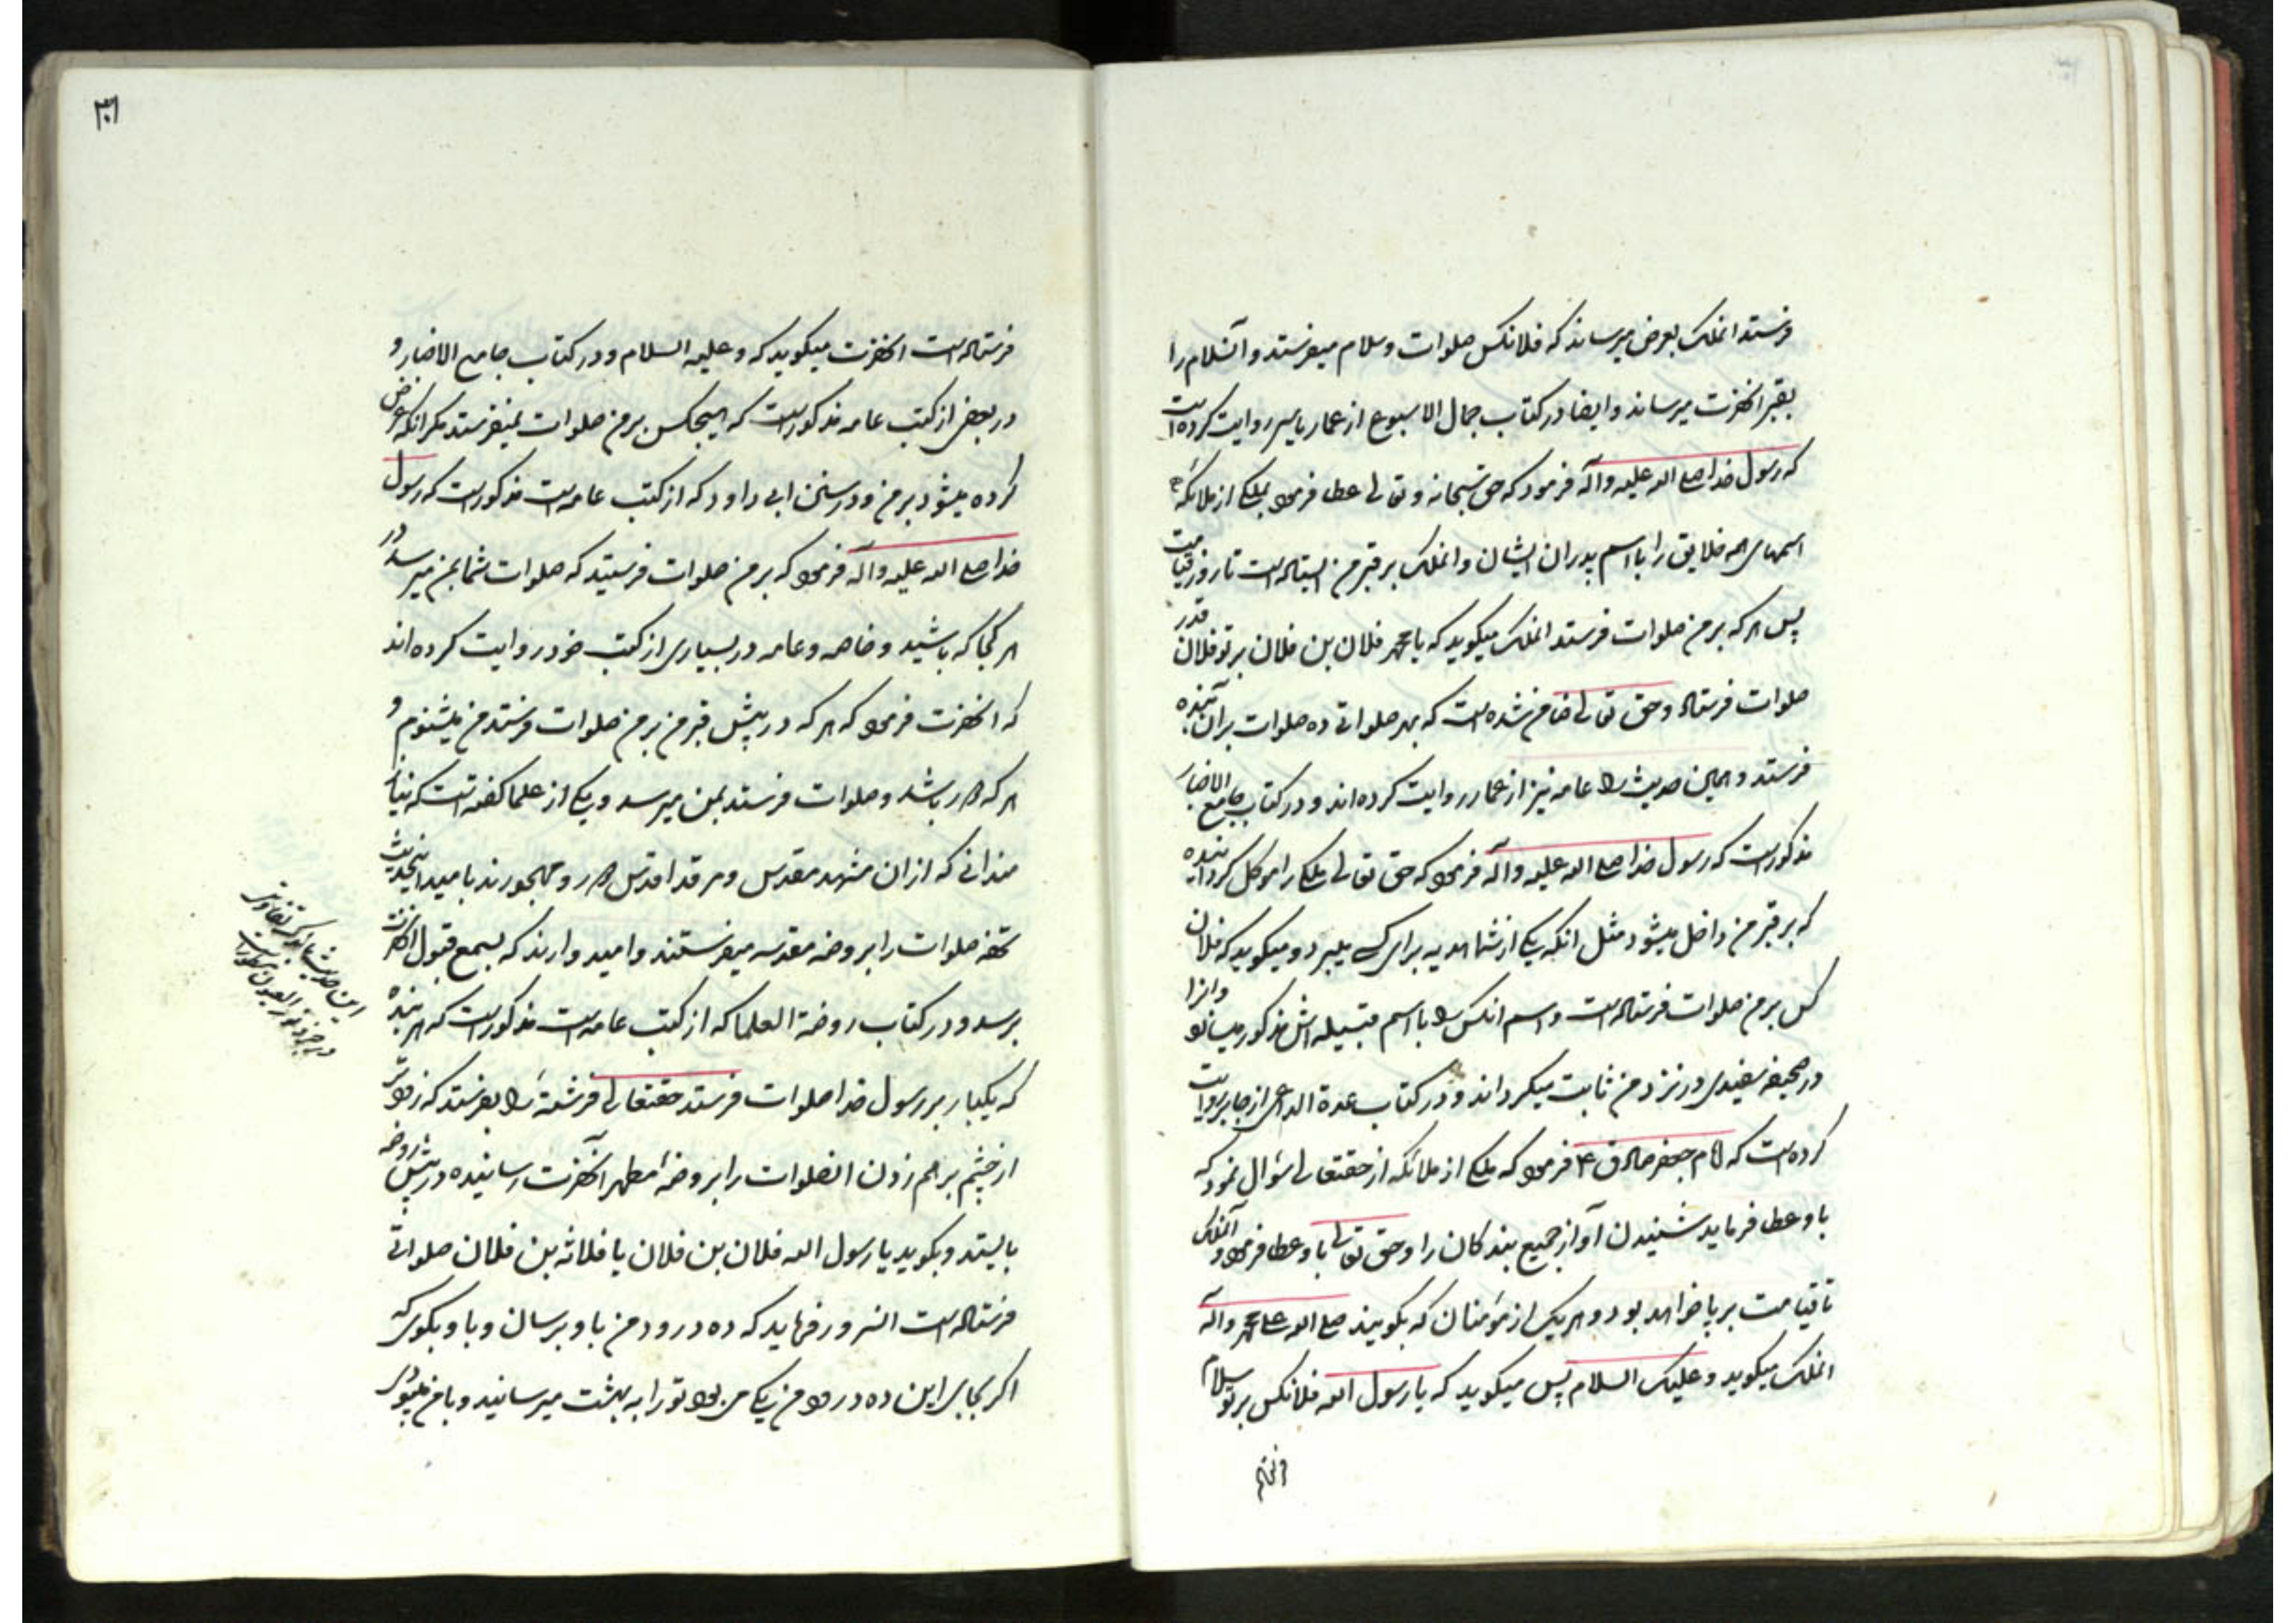 فرستد انملک بعرض میرساند که فلانکس صلوات و سلام میفرستد و آنسلام را
بقبر انحضرت میرساند و ایضا در کتاب جمال الاسبوع از عمار یاسر روایت کرده است
که رسول خدا صلی الله علیه و آله فرمود که حق سبحانه و تعالی عطا فرموده بملکی از ملائکه
اسمهای همه خلایق را با اسم پدران ایشان و انملک بر قبر من ایستاده است تا روز قیامت
پس هر که بر من صلوات فرستد انملک میکوید که یا محمد فلان بن فلان بر تو فلان قدر
صلوات فرستاده و حق تعالی ضامن شده است که بهر صلواتی ده صلوات بران بنده
فرستد و همین حدیث را عامه نیز از عمار روایت کرده اند و در کتاب جامع الاخبار
مذکور است که رسول خدا صلی الله علیه و آله فرموده که حق تعالی ملکی را موکل کردانیده
که بر قبر من داخل میشود مثل انکه یکی از شما هدیه برای کسی میبرد و میکوید که فلان
کس بر من صلوات فرستاده است و اسم انکس را با اسم قبیله اش مذکور میسازد و انرا
در صحیفه سفیدی در نزد من ثابت میکرداند و در کتاب عدة الداعی از جابر روایت
کرده است که امام جعفر صادق ع فرموده که ملکی از ملائکه از حقتعالی سئوال نمود که
باو عطا فرماید شنیدن آواز جمیع بندکان را و حق تعالی باو عطا فرموده و آنملک
تا قیامت بر پا خواهد بود و هر یک از مؤمنان که بکویند صلی الله علی محمد و آله
انملک میکوید و علیک السلام پس میکوید که یا رسول الله فلانکس بر تو سلام
فرستاده
۳۱
فرستاده است انحضرت میکوید که و علیه السلام و در کتاب جامع الاخبار و
در بعض از کتب عامه مذکور است که هیچکس بر من صلوات نمیفرستد مکر انکه عرض
کرده میشود بر من و در سنن ابی داود که از کتب عامه است مذکور است که رسول
خدا صلی الله علیه و آله فرموده که بر من صلوات فرستید که صلوات شما بمن میرسد در
هر کجا که باشید و خاصه و عامه در بسیاری از کتب خود روایت کرده اند
که انحضرت فرموده که هر که در پیش قبر من بر من صلوات فرستد من میشنوم و
هر که دور باشد و صلوات فرستد بمن میرسد و یکی از علما کفته است که نیاز
مندانی که از ان مشهد مقدس و مرقد اقدس دور و مهجورند بامید اینحدیث
تحفه صلوات را بروضه مقدسه میفرستند و امیدوارند که بسمع قبول انحضرت
برسد و در کتاب روضة العلما که از کتب عامه است مذکور است که هر بنده
که یکبار بر رسول خدا صلوات فرستد حقتعالی فرشتهٔ را بفرستد که زودتر
از چشم بر هم زدن انصلوات را بروضهٔ مطهر آنحضرت رسانیده در پیش روضه
بایستد و بکوید یا رسول الله فلان بن فلان یا فلانه بن فلان صلواتی
فرستاده است انسرور فرماید که ده درود من باو برسان و باو بکوی که
اکر بجای این ده درود من یکی می بود تو را به بهشت میرسانید و با من میبودی
این حدیث